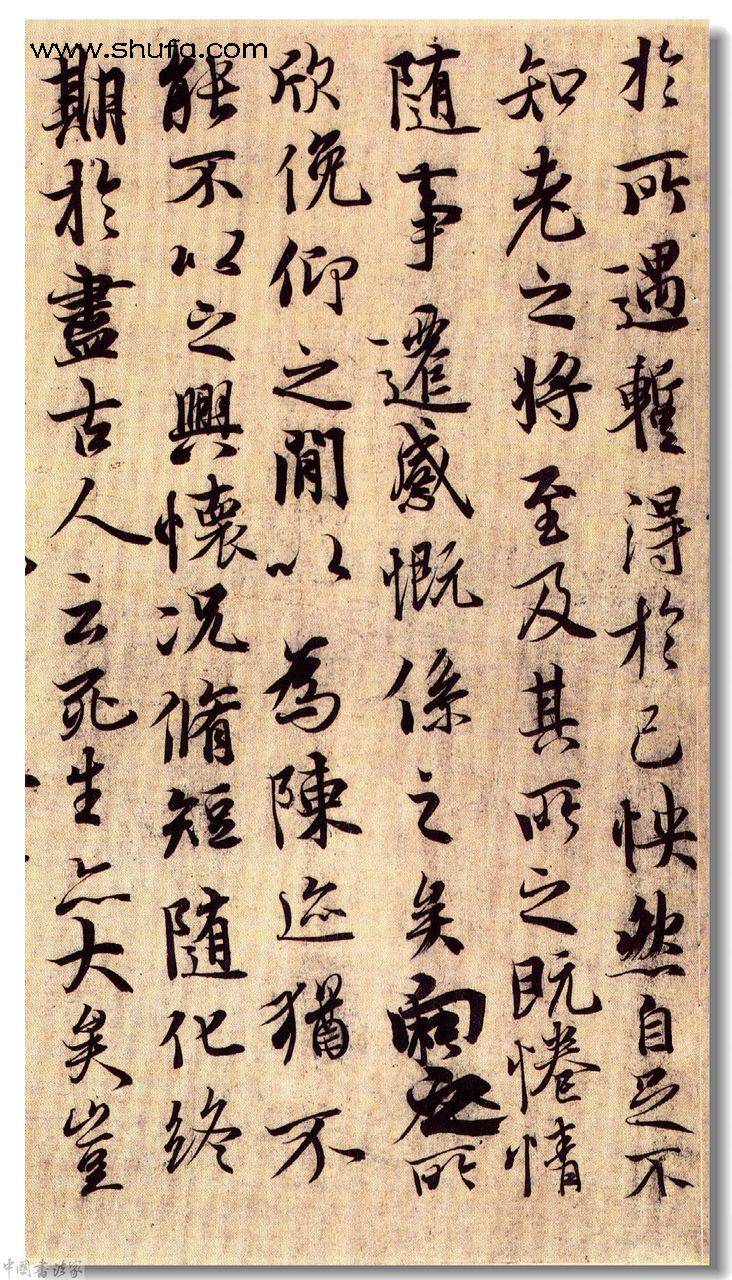 www.shufa.com
於所遇暫得於己怏然自足不
知老之將至及其所之既惓情
随事遷感慨係之矣向之所
欣俛仰之閒以為陳迹猶不
能不以之興懷況脩短随化終
期於盡古人云死生亦大矣豈
中國書法家